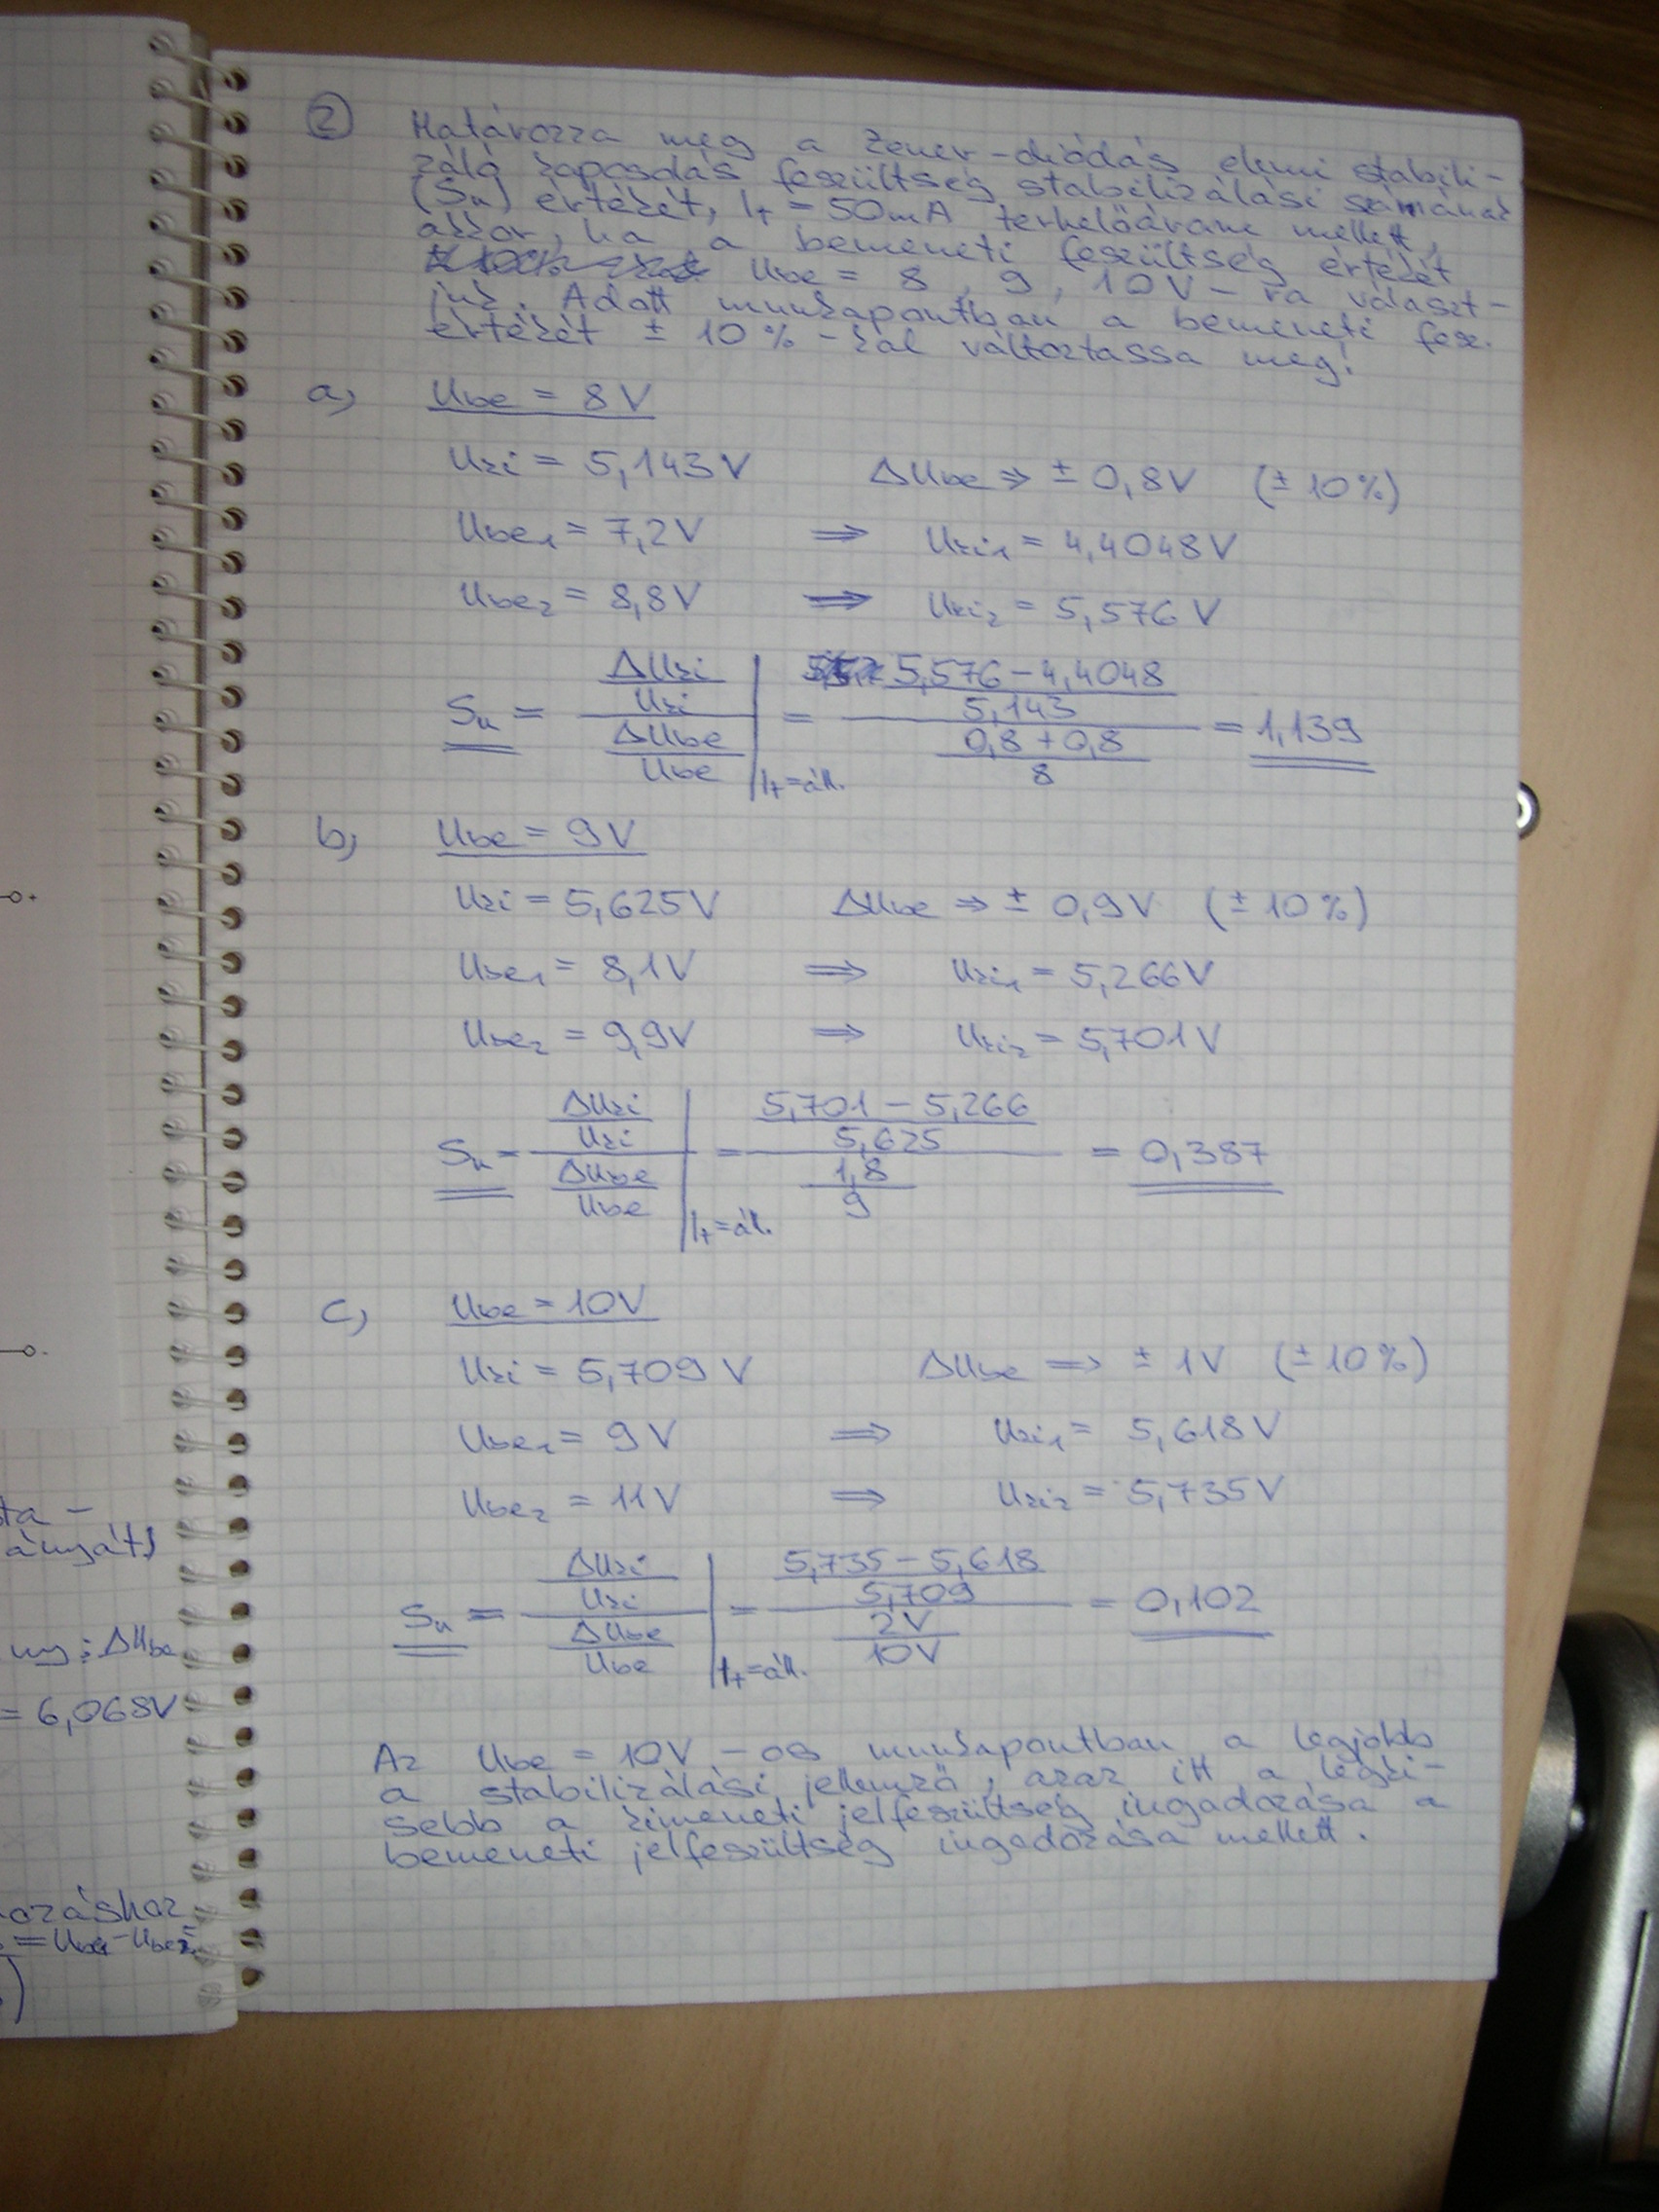 ② Határozza meg a Zener-diódás elemi stabili-
záló kapcsolás feszültség stabilizálási számának
(Su) értékét, It = 50mA terhelőáram mellett,
akkor, ha a bemeneti feszültség értékét
Ube = 8, 9, 10V-ra választ-
juk. Adott munkapontban a bemeneti fesz.
értékét ± 10%-kal változtassa meg!
a) Ube = 8V
Uki = 5,143V ΔUbe ⇒ ± 0,8V (± 10%)
Ube1 = 7,2V ⇒ Uki1 = 4,4048V
Ube2 = 8,8V ⇒ Uki2 = 5,576V
Su = ((ΔUki/Uki)/(ΔUbe/Ube))|It=áll. = ((5,576-4,4048)/5,143)/((0,8+0,8)/8) = 1,139
b) Ube = 9V
Uki = 5,625V ΔUbe ⇒ ± 0,9V (± 10%)
Ube1 = 8,1V ⇒ Uki1 = 5,266V
Ube2 = 9,9V ⇒ Uki2 = 5,701V
Su = ((ΔUki/Uki)/(ΔUbe/Ube))|It=áll. = ((5,701-5,266)/5,625)/(1,8/9) = 0,387
c) Ube = 10V
Uki = 5,709V ΔUbe ⇒ ± 1V (± 10%)
Ube1 = 9V ⇒ Uki1 = 5,618V
Ube2 = 11V ⇒ Uki2 = 5,735V
Su = ((ΔUki/Uki)/(ΔUbe/Ube))|It=áll. = ((5,735-5,618)/5,709)/(2V/10V) = 0,102
Az Ube = 10V-os munkapontban a legjobb
a stabilizálási jellemző, azaz itt a legki-
sebb a kimeneti jelfeszültség ingadozása a
bemeneti jelfeszültség ingadozása mellett.
ta-
ányát!
ny: ΔUbe
= 6,068V
ozáshoz